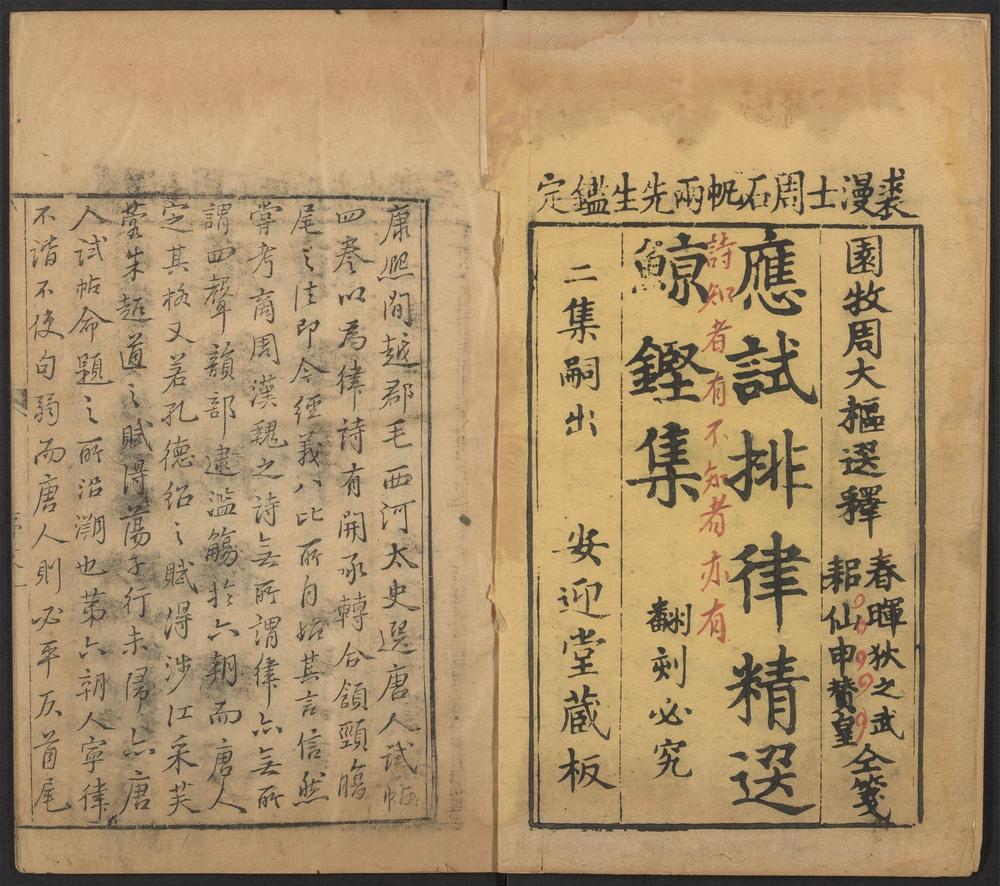 裘漫士周石帆兩先生鑑定
園牧周大樞選釋
春暉狄之武
耜仙申贊皇
仝箋
應試排律精選
詩知者有不知者亦有
鯨鏗集
翻刻必究
二集嗣出
安迎堂藏板
康熙間越郡毛西河太史選唐人試帖
四卷以為律詩有開承轉合領頸腹
尾之法即今經義八比所自始其言信然
嘗考商周漢魏之詩無所謂律亦無所
謂四聲韻部逮濫觴於六朝而唐人
定其格又若孔德紹之賦得涉江采芙
蓉朱超道之賦得蕩子行未歸亦唐
人試帖命題之所沿溯也第六朝人寧律
不諧不使句弱而唐人則必平仄首尾